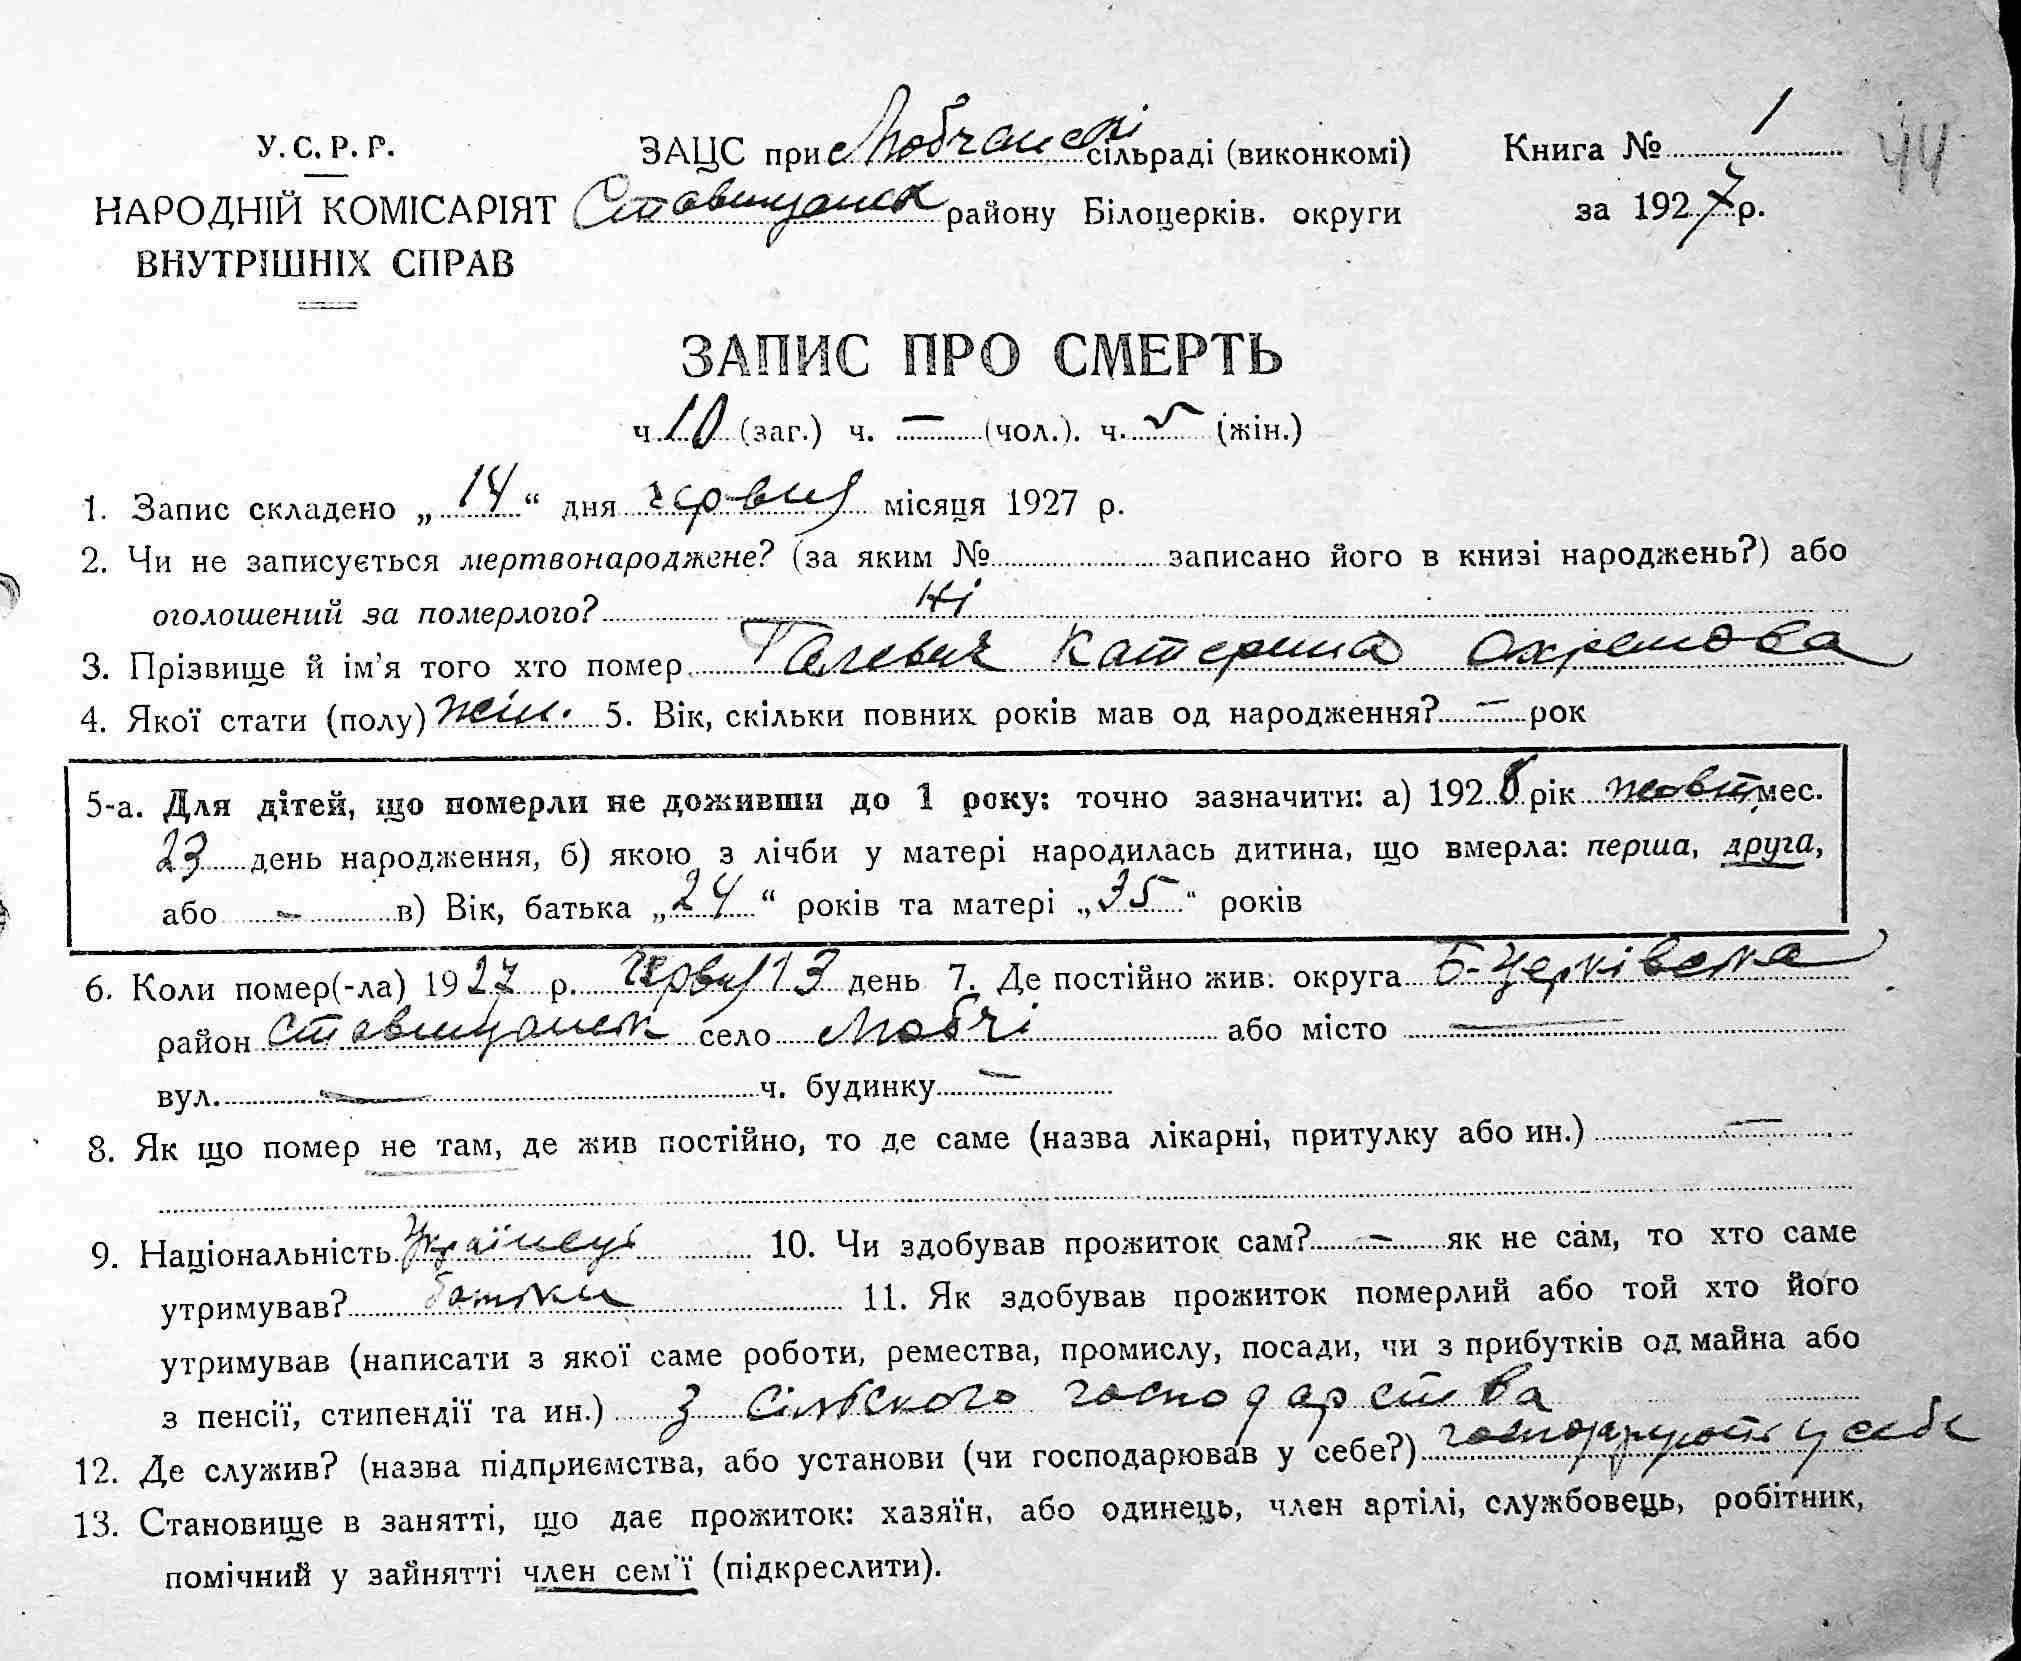 У.С.Р.Р.
НАРОДНІЙ КОМІСАРІЯТ
ВНУТРІШНІХ СПРАВ
ЗАЦС при Любчанскі сільраді (виконкомі)
Ставищанск району Білоцерків. округи
Книга № 1
за 1927 р.
44
ЗАПИС ПРО СМЕРТЬ
ч. 10 (заг.) ч. — (чол.). ч. 5 (жін.)
1. Запис складено „14“ дня червня місяця 1927 р.
2. Чи не записується мертвонароджене? (за яким № записано його в книзі народжень?) або
оголошений за померлого? Ні
3. Прізвище й ім'я того хто помер Галевич Катерина Охремова
4. Якої стати (полу) жін. 5. Вік, скільки повних років мав од народження? — рок
5-а. Для дітей, що померли не доживши до 1 року: точно зазначити: а) 1926 рік жовт. мес.
23 день народження, б) якою з лічби у матері народилась дитина, що вмерла: перша, друга,
або — в) Вік, батька „24“ років та матері „35“ років
6. Коли помер(-ла) 1927 р. червня 13 день 7. Де постійно жив: округа Б-Церківска
район Ставищанск село Любчі або місто —
вул. — ч. будинку —
8. Як що помер не там, де жив постійно, то де саме (назва лікарні, притулку або ин.) —
9. Національність Українець 10. Чи здобував прожиток сам? — як не сам, то хто саме
утримував? батьки 11. Як здобував прожиток померлий або той хто його
утримував (написати з якої саме роботи, ремества, промислу, посади, чи з прибутків од майна або
з пенсії, стипендії та ин.) з сільского господарства
12. Де служив? (назва підприємства, або установи (чи господарював у себе?) господарують у себе
13. Становище в занятті, що дає прожиток: хазяїн, або одинець, член артілі, службовець, робітник,
помічний у зайнятті член сем'ї (підкреслити).